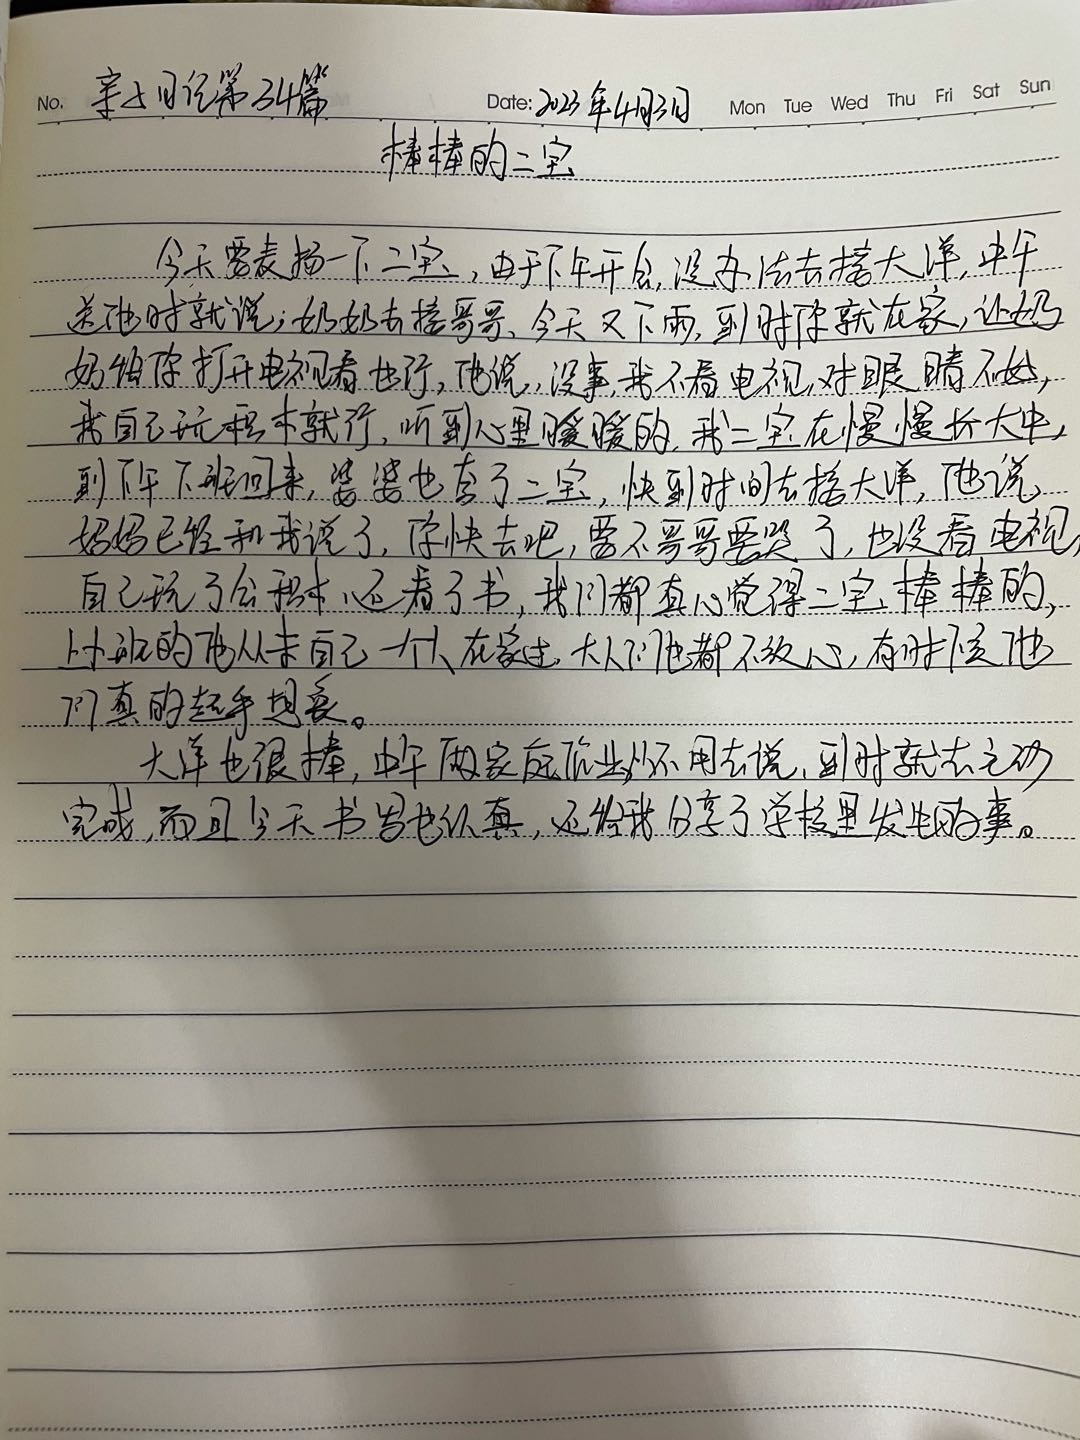 No. 亲子日记第34篇 Date: 2023年4月3日 Mon Tue Wed Thu Fri Sat Sun
棒棒的二宝
今天要表扬一下二宝,由于下午开会,没办法去接大洋,中午
送他时就说;奶奶去接哥哥、今天又下雨,到时你就在家,让奶
奶给你打开电视看也行,他说,没事,我不看电视,对眼睛不好,
我自己玩积木就行,听到心里暖暖的,我二宝在慢慢长大中,
到下午下班回来,婆婆也夸了二宝,快到时间去接大洋,他说
妈妈已经和我说了,你快去吧,要不哥哥要哭了,也没看电视,
自己玩了会积木、还看了书,我们都真心觉得二宝棒棒的,
上小班的他从未自己一个人在家过,大人们也都不放心,有时候他
们真的超乎想象。
大洋也很棒,中午两家庭作业从不用去说、到时就去主动
完成,而且今天书写也认真,还给我分享了学校里发生的事。